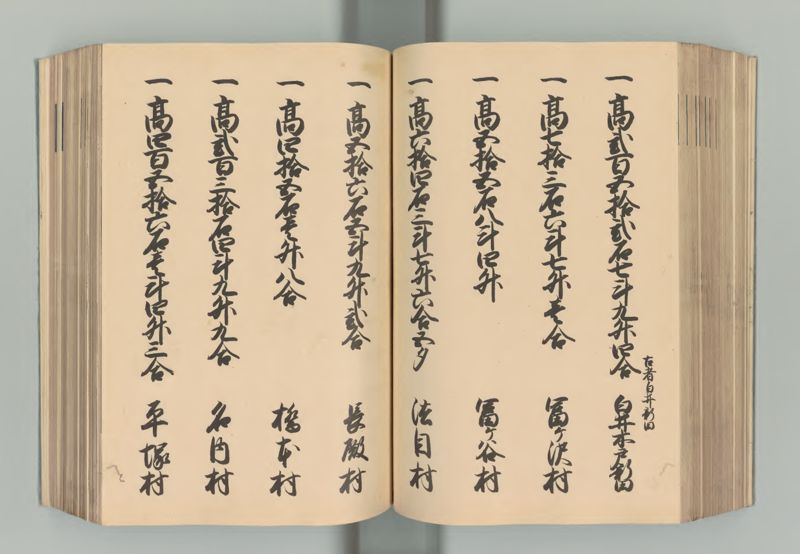 一 高弐百五拾弐石七斗九升四合 白井木戸新田
古者白井新田
一 高七拾三石六斗七升壱合 冨ケ沢村
一 高五拾五石八斗四升 冨ケ谷村
一 高六拾四石三斗七升六合五夕 法目村
一 高五拾六石五斗九升弐合 長殿村
一 高四拾五石壱升八合 橋本村
一 高弐百三拾石四斗九升九合 名内村
一 高四百五拾六石壱斗四升三合 平塚村